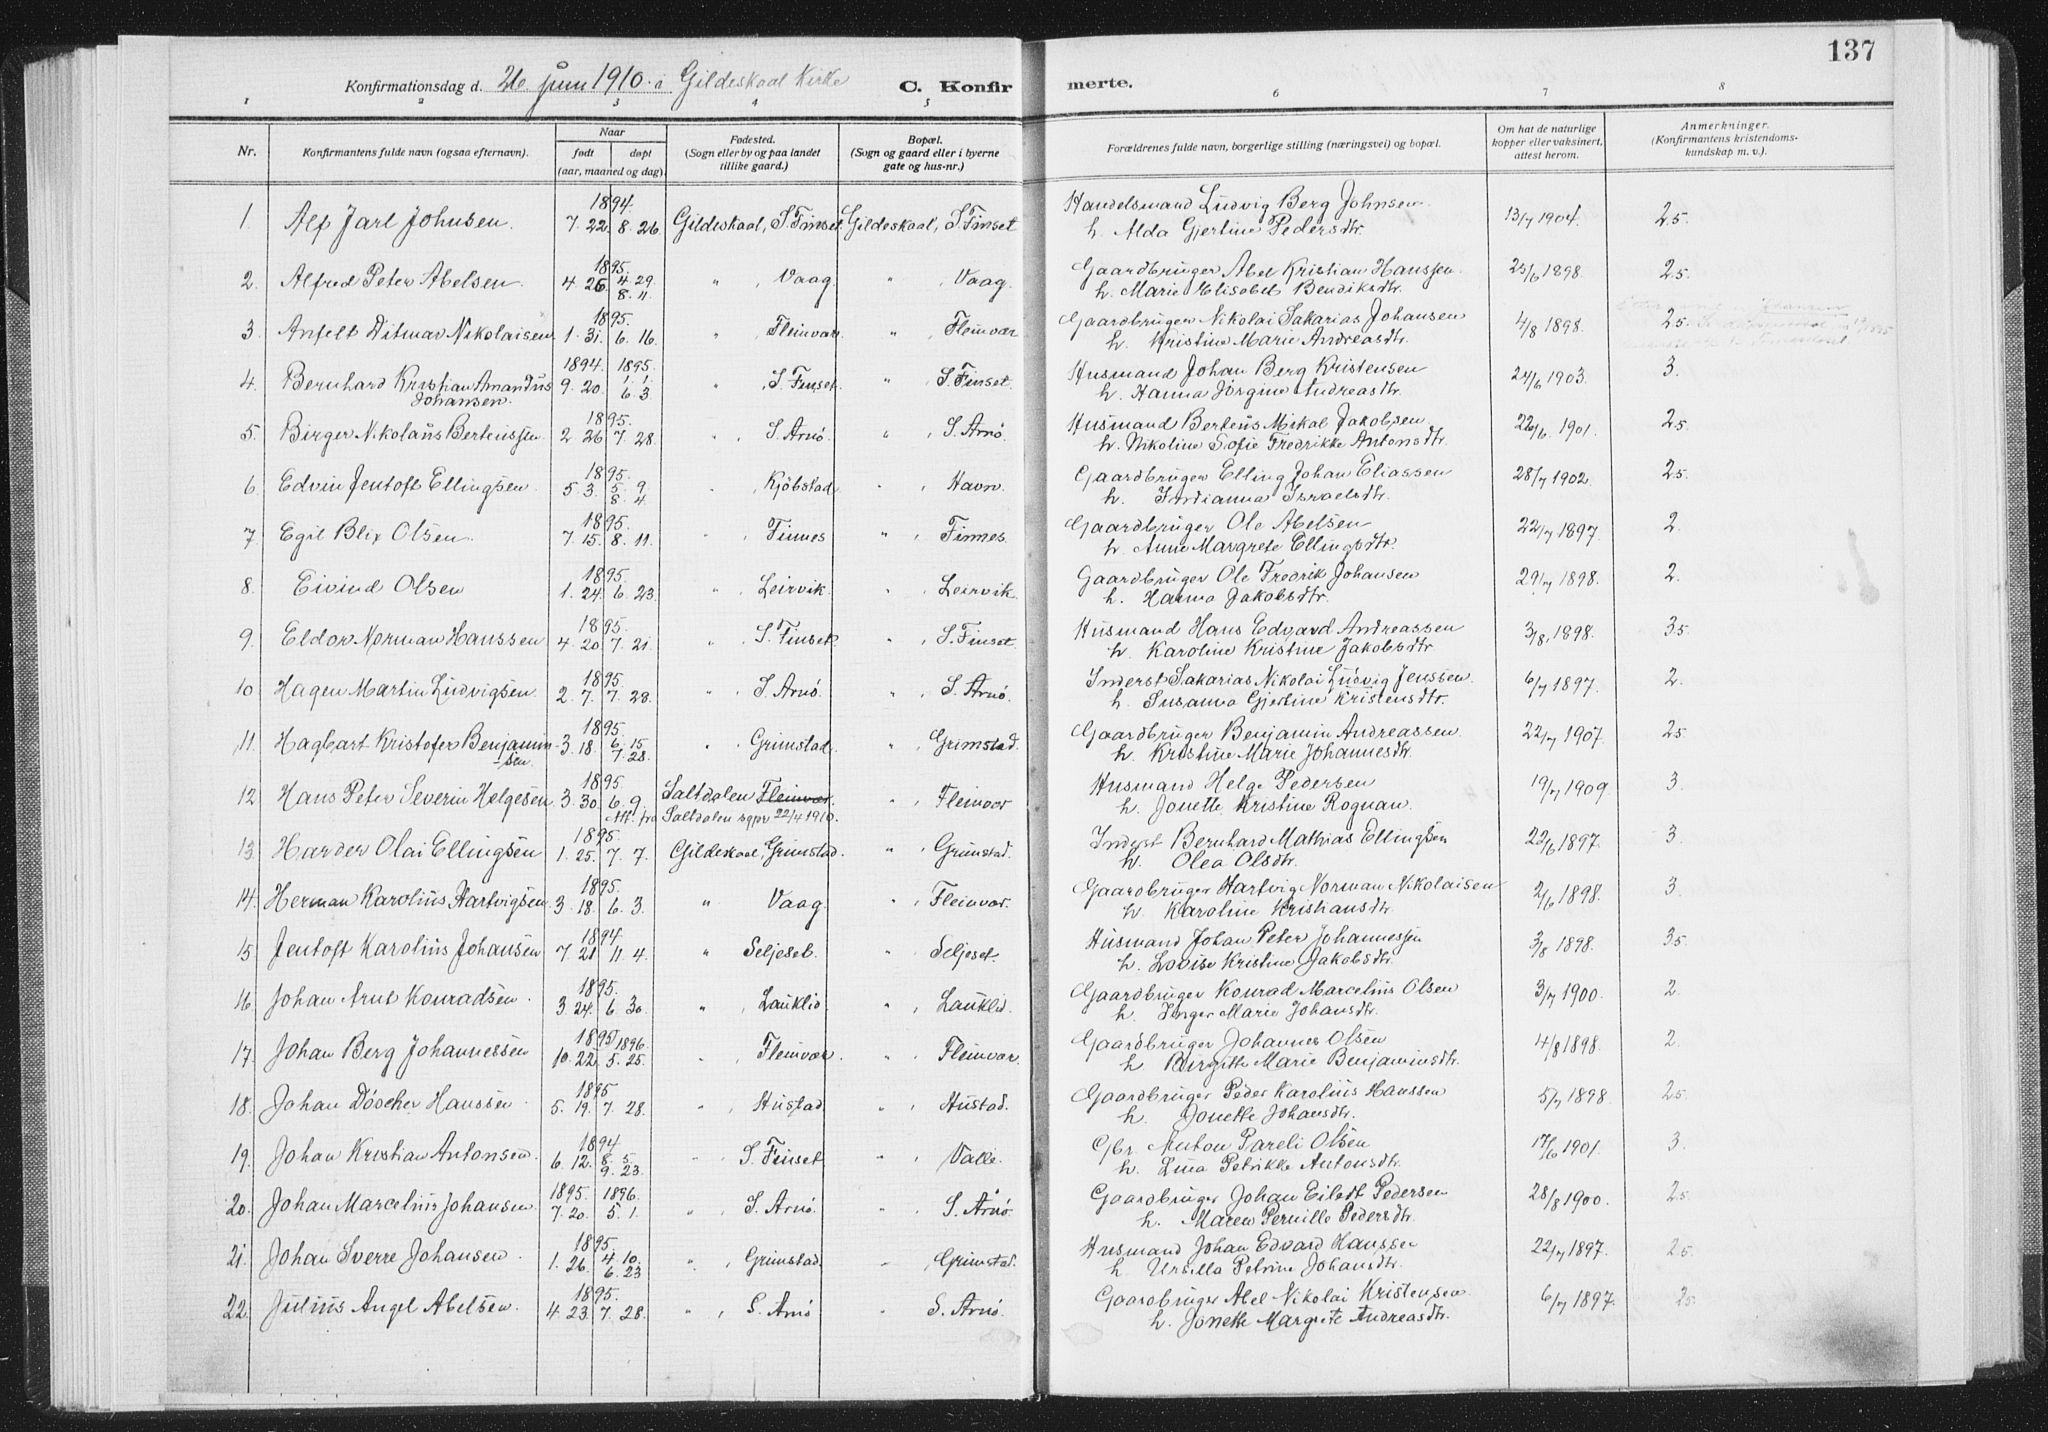 137
Konfirmationsdag d. 26. juni 1910. i Gildeskaal Kirke C. Konfirmerte.
1 2 3 4 5 6 7 8
Nr. Konfirmantens fulde navn (ogsaa efternavn). Naar født døpt (aar, maaned og dag). Fødested. (Sogn eller by og paa landet tillike gaard.) Bopæl. (Sogn og gaard eller i byerne gate og hus-nr.) Forældrenes fulde navn, borgerlige stilling (næringsvei) og bopæl. Om hat de naturlige kopper eller vaksinert, attest herom. Anmerkninger. (Konfirmantens kristendoms-kundskap m. v.).
1894.
1. Alf Jarl Johnsen. 7. 22. 8. 26. Gildeskaal, S. Finset. Gildeskaal, S. Finset Handelsmand Ludvig Berg Johnsen. 13/7 1904. 2.5.
h. Alda Gjertine Pedersdtr.
1895.
2. Alfred Peter Abelsen. 4 26. 4. 29. 8. 11. " , Vaag. " , Vaag. Gaardbruger Abel Kristian Hanssen. 25/6 1898. 2.5.
h. Marie Elisabet Bendiksdtr.
1895.
3. Anfelt Ditmar Nikolaisen. 1. 31. 6. 16. " , Fleinvær. " , Fleinvær Gaardbruger Nikolai Sakarias Johansen 4/8 1898. 2.5.
h. Kristine Marie Andreasdtr.
1894. 1895.
4. Bernhard Kristian Amandus Johansen. 9. 20. 1. 1. 6. 3 " , S. Finset. " , S. Finset. Husmand Johan Berg Kristensen 24/6 1903. 3.
h. Hanna Jørgine Andreasdtr.
1895.
5. Birger Nikolaus Berteussen. 2 26. 7. 28. " , S. Arnø. " , S. Arnø. Husmand Berteus Mikal Jakobsen. 22/6. 1901. 2.5
h. Nikoline Sofie Fredrikke Antonsdtr.
1895.
6. Edvin Jentoft Ellingsen. 5. 3. 5. 9 8. 4. " , Kjøbstad " , Havn. Gaardbruger Elling Johan Eliassen 28/7 1902. 2.5.
h. Indianna Israelsdtr.
1895.
7. Egil Blix Olsen. 7. 15. 8. 11. " , Finnes " , Finnes. Gaardbruger Ole Abelsen 22/7 1897. 2.
h. Anne Margrete Ellingsdtr.
1895.
8. Eivind Olsen 1. 24. 6. 23. " , Leirvik. " , Leirvik. Gaardbruger Ole Fredrik Johansen 29/7 1898. 2.
h. Hanna Jakobsdtr.
1895.
9. Eldor Norman Hanssen 4. 20. 7. 21. " , S. Finset. " , S. Finset. Husmand Hans Edvard Andreassen 3/8 1898. 3.5
h. Karoline Kristine Jakobsdtr.
1895.
10 Hagen Martin Ludvigsen. 2. 7. 7. 28. " , S. Arnø. " , S. Arnø. Inderst Sakarias Nikolai Ludvig Jenssen. 6/7 1897. 2.
h. Susanna Gjertine Kristensdtr.
1895.
11. Hagbart Kristofer Benjamin-sen. 3. 18. 6. 15 7. 28. " , Grimstad. " , Grimstad. Gaardbruger Benjamin Andreassen. 22/7 1907. 2.5
h. Kristine Marie Johannesdtr.
1895
12 Hans Peter Severin Helgesen. 3. 30. 6. 9. Saltdalen Fleinvær. " , Fleinvær Husmand Helge Pedersen 19/7 1909 3.
Att. fra Saltdalen sgpr 22/4 1910. h. Jonette Kristine Rognan.
1895.
13. Harder Olai Ellingsen 1. 25. 7. 7. Gildeskaal, Grimstad. " , Grimstad. Inderst Bernhard Mathias Ellingsen 22/6 1897. 3.
h. Olea Olsdtr.
1895.
14. Herman Karolius Hartvigsen. 3. 18. 6. 3. " Vaag. " , Fleinvær. Gaardbruger Hartvig Norman Nikolaisen 2/6 1898. 3.
h. Karoline Kristiansdtr.
1894.
15 Jentoft Karolius Johansen 7. 21 11. 4. " Seljeset. " , Seljeset. Husmand Johan Peter Johannessen 3/8 1898. 3.5
h. Lovise Kristine Jakobsdtr.
1895.
16 Johan Arnt Konradsen. 3. 24. 6. 30. " , Lauklid " , Lauklid. Gaardbruger Konrad Marcelius Olsen 3/7 1900. 2.
h. Inger Marie Johansdtr.
1895 1896.
17. Johan Berg Johannessen 10. 22. 5. 25. " , Fleinvær. " , Fleinvær. Gaardbruger Johannes Olsen 4/8 1898. 2.
h. Birgitte Marie Benjaminsdtr.
1895
18. Johan Döscher Hanssen 5. 19. 7. 28. " , Hustad. " , Hustad. Gaardbruger Peder Karolius Hanssen 5/7 1898. 2.5.
h. Jonette Johansdtr.
1894
19. Johan Kristian Antonsen. 6. 12. 8. 5. 9. 23. " , S. Finset " , Valle. Gbr. Anton Pareli Olsen 17/6 1901. 3.
h. Lina Petrikke Antonsdtr.
1895. 1896.
20. Johan Marcelius Johansen. 7. 20. 5. 1. " , S. Arnø. " , S. Arnø. Gaardbruger Johan Eilert Pedersen 28/8 1900. 2.5.
h. Maren Pernille Pedersdtr.
1895.
21. Johan Sverre Johansen. 1. 26. 4. 10. 6. 23 " , Grimstad. " , Grimstad. Husmand Johan Edvard Hanssen 22/7 1897. 2.5.
h. Ursilla Petrine Johansdtr.
1895.
22. Julius Angel Abelsen. 4. 23. 7. 28. " , S. Arnø " S. Arnø. Gaardbruger Abel Nikolai Kristensen. 6/7 1897. 2.5.
h. Jonette Margrete Andreasdtr.